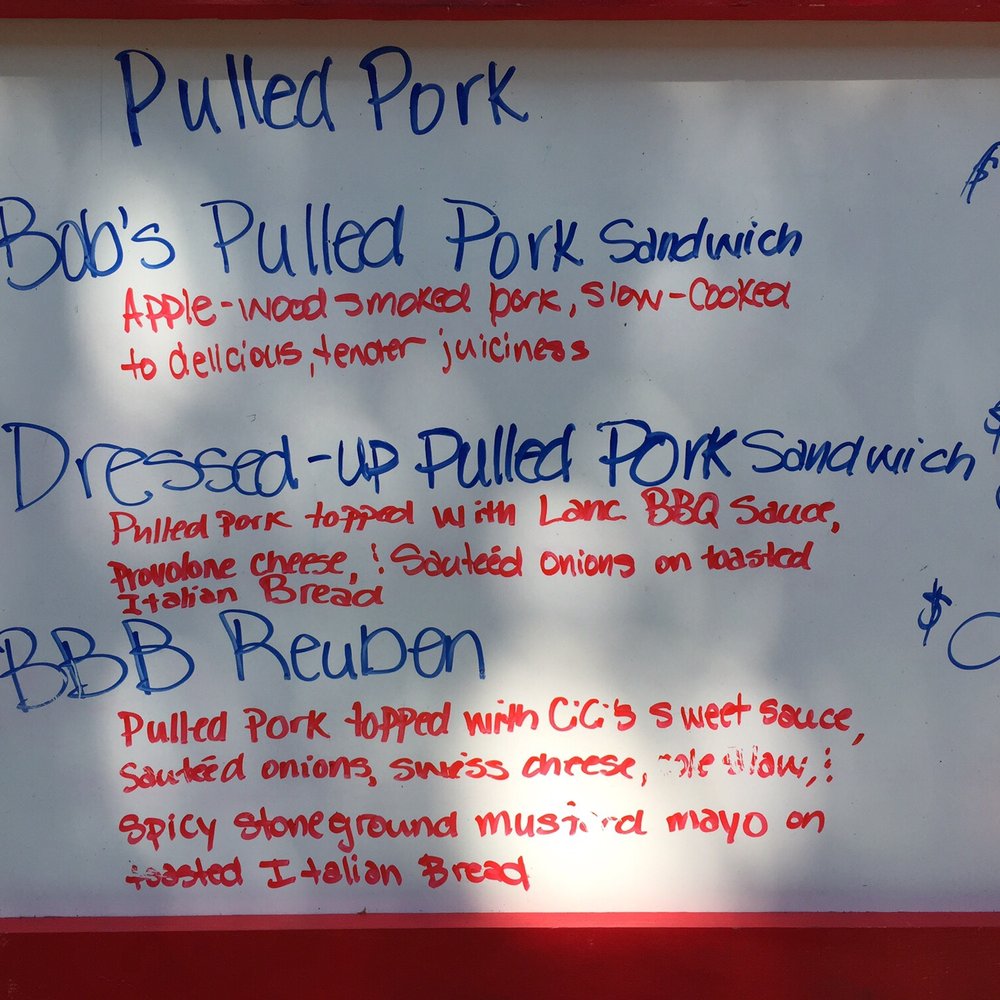 Pulled Pork
$
Bob's Pulled Pork Sandwich
Apple-wood smoked pork, slow-cooked
to delicious, tender juiciness
$
Dressed-up Pulled Pork Sandwich
Pulled pork topped with Lanc BBQ Sauce,
Provolone cheese, ! Sauteéd onions on toasted
Italian Bread
$
BBB Reuben
Pulled Pork topped with CiCi's sweet sauce,
Sauteéd onions, swiss cheese, cole slaw, !
Spicy stoneground mustard mayo on
toasted Italian Bread